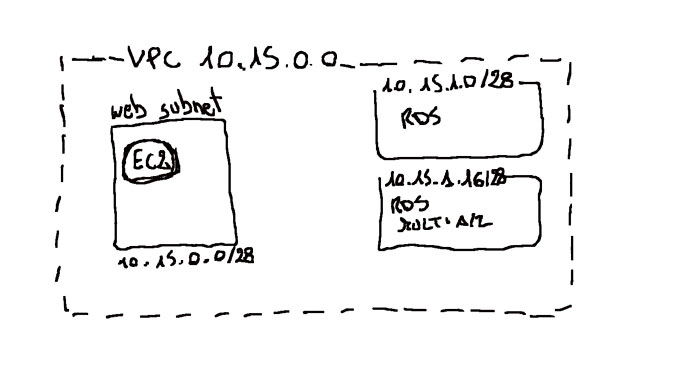 VPC 10.15.0.0
web subnet
EC2
10.15.0.0/28
10.15.1.0/28
RDS
10.15.1.16/28
RDS
MULTI-A/Z